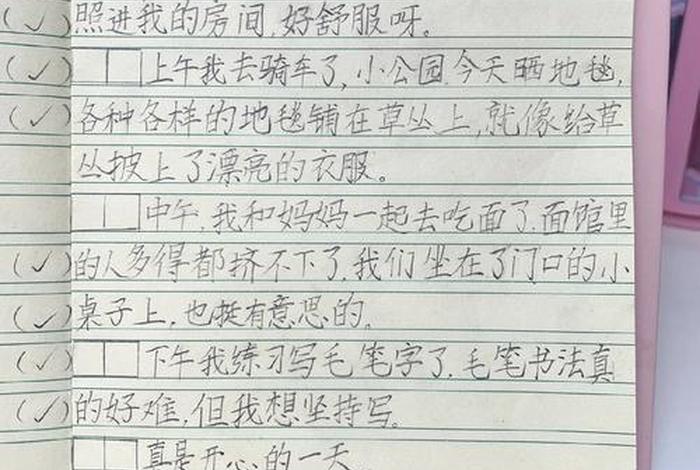 (✓)照进我的房间,好舒服呀。
(✓)上午我去骑车了,小公园今天晒地毯,
(✓)各种各样的地毯铺在草丛上,就像给草
丛披上了漂亮的衣服。
中午,我和妈妈一起去吃面了,面馆里
(✓)的人多得都挤不下了,我们坐在了门口的小
(✓)桌子上,也挺有意思的。
(✓)下午我练习写毛笔字了,毛笔书法真
(✓)的好难,但我想坚持写。
真是开心的一天